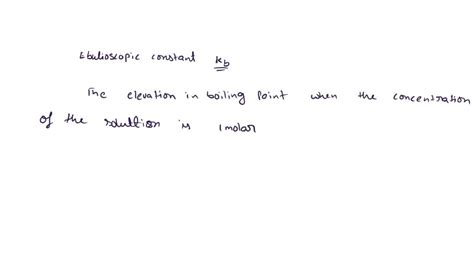 Ebulioscopic constant kb
The elevation in boiling point when the concentration
of the solution is 1molar